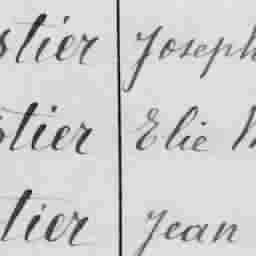 stier Joseph
stier Elie
tier Jean